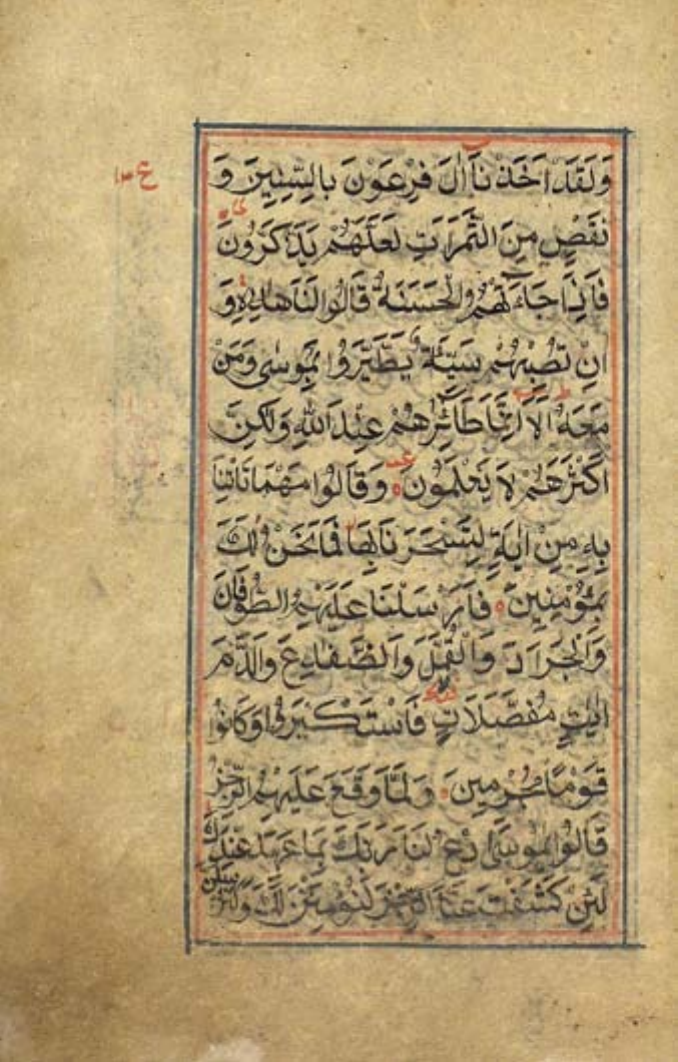 وَلَقَدْ اَخَذْنَا اٰلَ فِرْعَوْنَ بِالسِّنِيْنَ وَ
نَقْصٍ مِنَ الثَّمَرٰتِ لَعَلَّهُمْ يَذَّكَّرُوْنَ
فَاِذَا جَاءَتْهُمُ الْحَسَنَةُ قَالُوْا لَنَا هٰذِهٖ وَ
اِنْ تُصِبْهُمْ سَيِّئَةٌ يَطَّيَّرُوْا بِمُوْسٰى وَمَنْ
مَعَهٗ اَلَا اِنَّمَا طَائِرُهُمْ عِنْدَ اللهِ وَلٰكِنَّ
اَكْثَرَهُمْ لَا يَعْلَمُوْنَ وَقَالُوْا مَهْمَا تَاْتِنَا
بِهٖ مِنْ اٰيَةٍ لِتَسْحَرَنَا بِهَا فَمَا نَحْنُ لَكَ
بِمُؤْمِنِيْنَ فَاَرْسَلْنَا عَلَيْهِمُ الطُّوْفَانَ
وَالْجَرَادَ وَالْقُمَّلَ وَالضَّفَادِعَ وَالدَّمَ
اٰيٰتٍ مُفَصَّلَاتٍ فَاسْتَكْبَرُوْا وَكَانُوْا
قَوْمًا مُجْرِمِيْنَ وَلَمَّا وَقَعَ عَلَيْهِمُ الرِّجْزُ
قَالُوْا يٰمُوْسَى ادْعُ لَنَا رَبَّكَ بِمَا عَهِدَ عِنْدَكَ
لَئِنْ كَشَفْتَ عَنَّا الرِّجْزَ لَنُؤْمِنَنَّ لَكَ وَلَنُرْسِلَنَّ